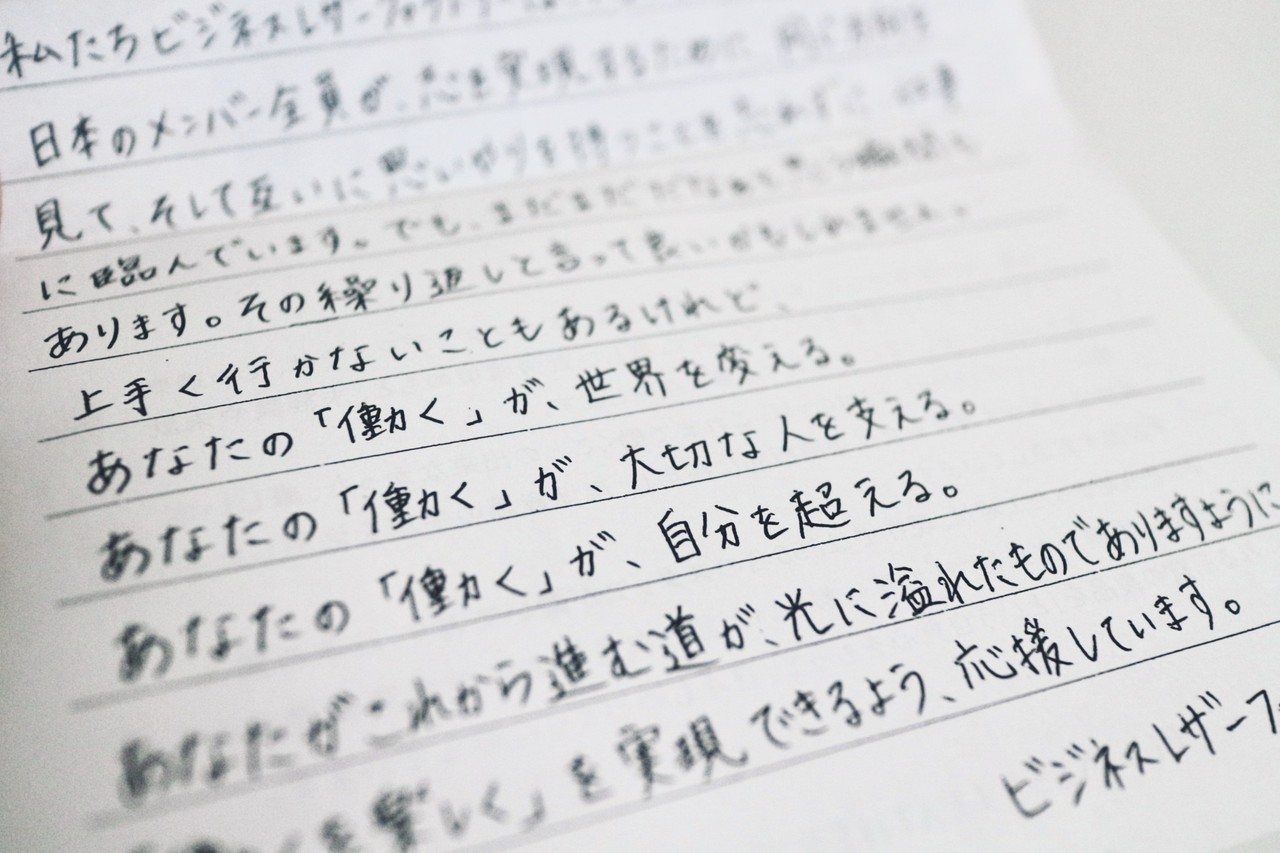 私たちビジネスレザーファクトリー
日本のメンバー全員が、志を実現するために 同じ方向を
見て、そして互いに思いやりを持つことを忘れずに 仕事
に臨んでいます。でも、まだまだだなぁと思う瞬間も
あります。その繰り返しと言って良いかもしれません。
上手く行かないこともあるけれど、
あなたの「働く」が、世界を変える。
あなたの「働く」が、大切な人を支える。
あなたの「働く」が、自分を超える。
あなたがこれから進む道が、光に溢れたものでありますように
を楽しく」を実現できるよう、応援しています。
ビジネスレザーフ